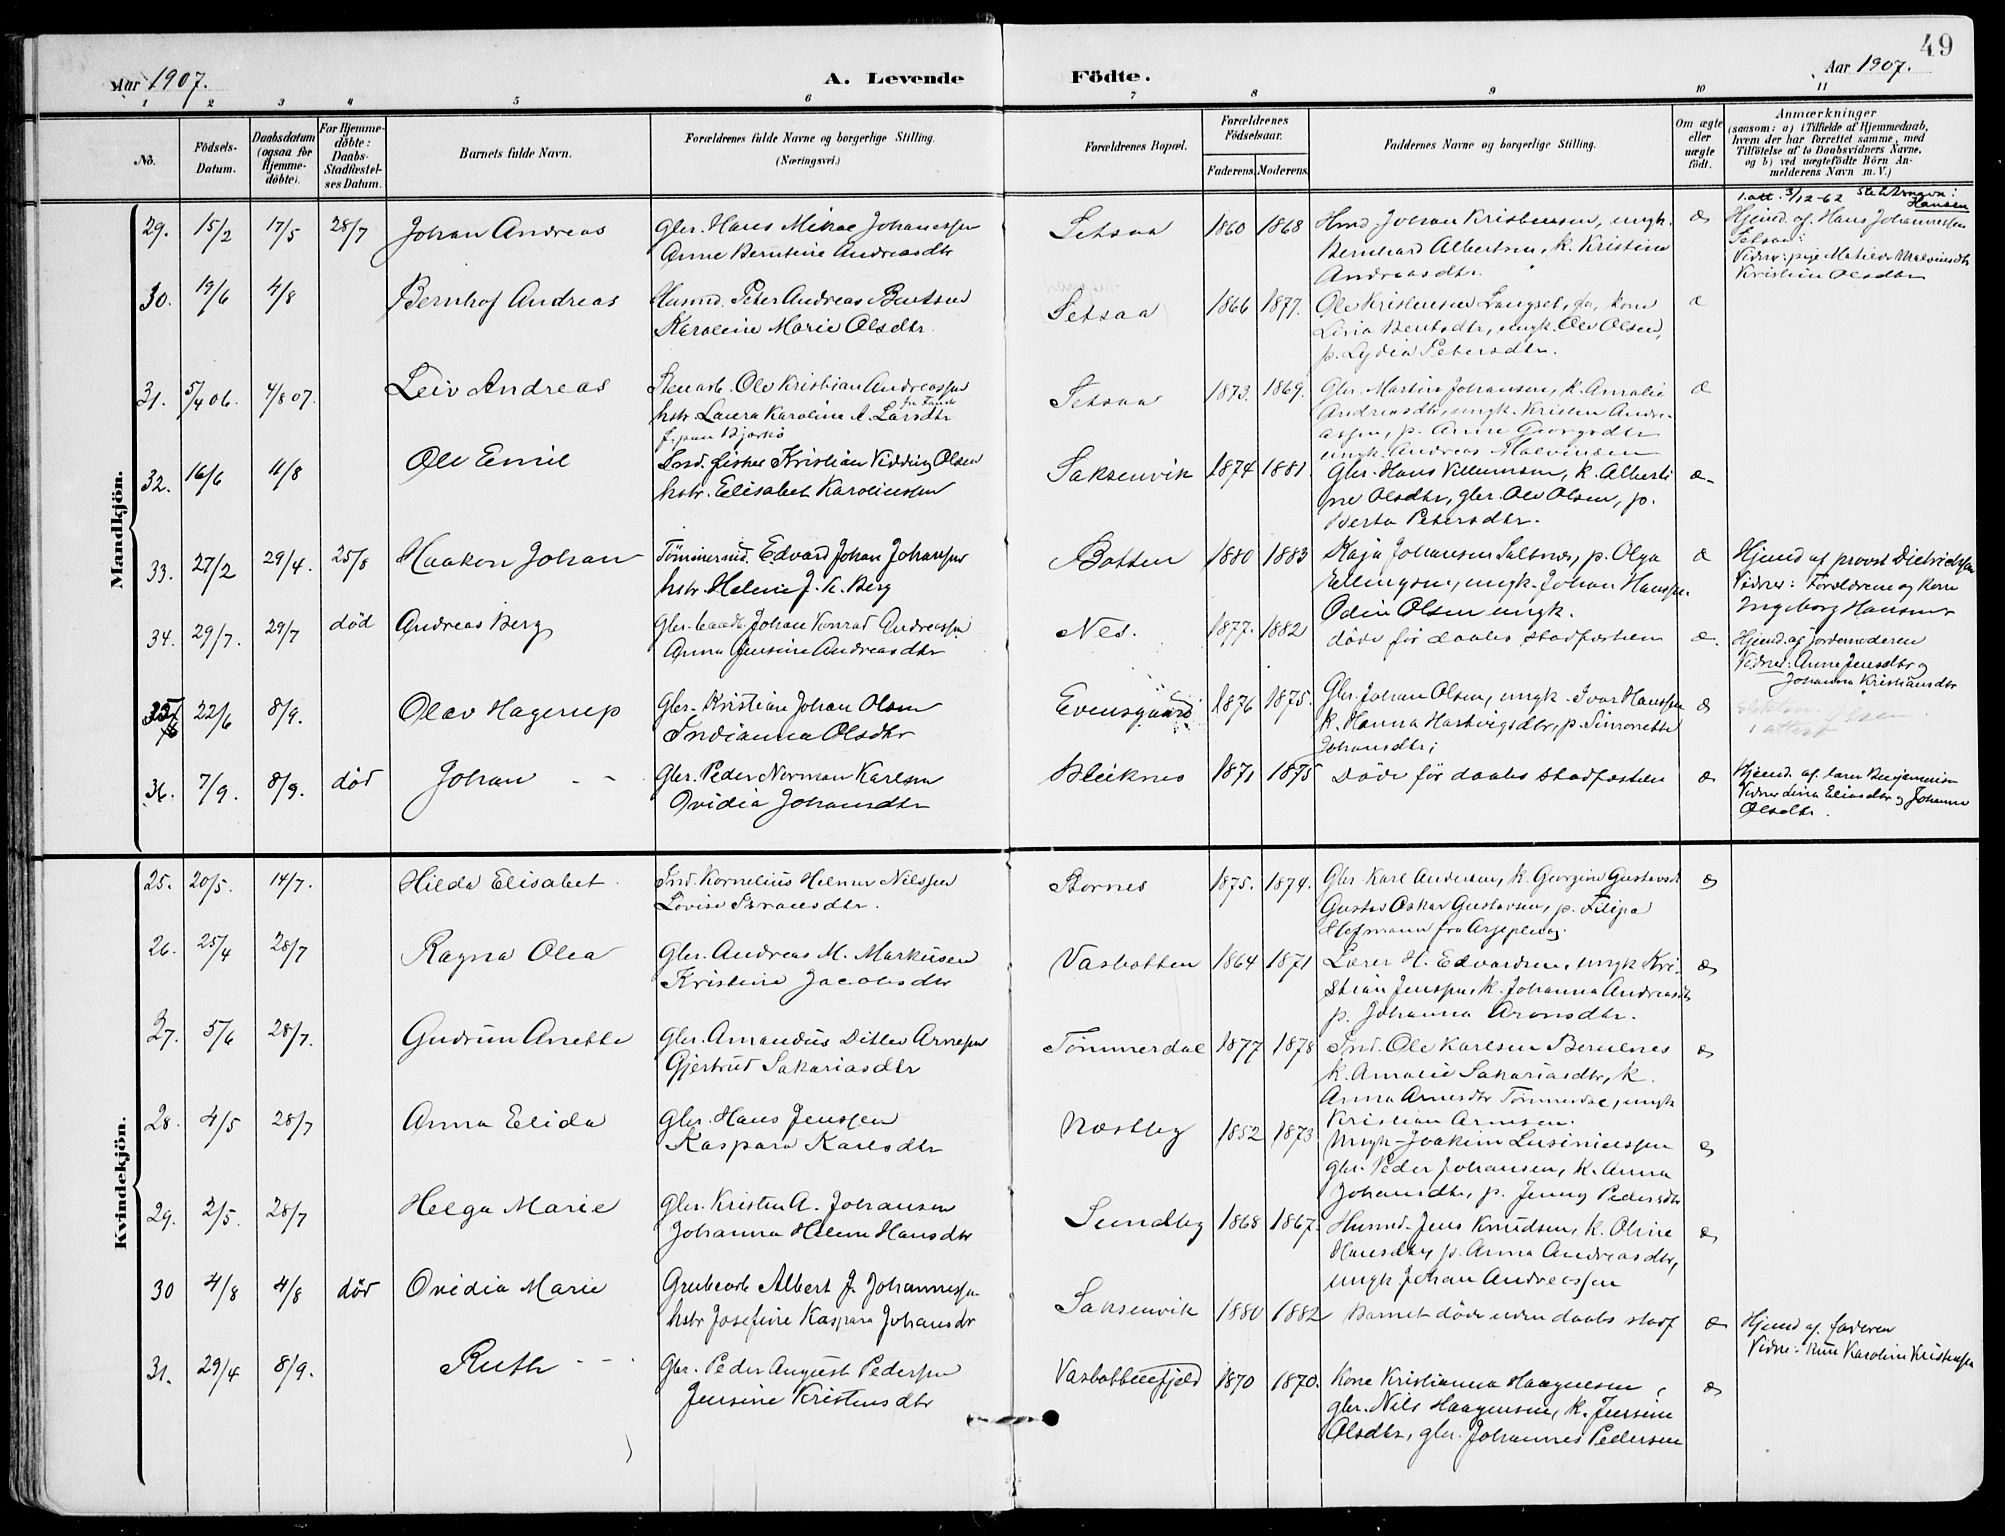 49
Aar 1907. A. Levende Födte. Aar 1907.
1 2 3 4 5 6 7 8 9 10 11
No.
Födsels-Datum.
Daabsdatum (ogsaa för Hjemme-döbte).
For Hjemme-döbte: Daabs-Stadfæstel-ses Datum.
Barnets fulde Navn.
Forældrenes fulde Navne og borgerlige Stilling.
(Næringsvei.)
Forældrenes Bopæl.
Forældrenes Födselsaar.
Faderens. Moderens.
Faddernes Navne og borgerlige Stilling.
Om ægte eller uægte födt.
Anmærkninger
(saasom: a) i Tilfælde af Hjemmedaab, hvem der har forrettet samme, med Tilföielse af to Daabsvidners Navne, og b) ved uægtefödte Börn An-melderens Navn m. V.)
Mandkjön.
29. 15/2 17/5 28/7 Johan Andreas
Gbr. Hans Mikae Johanessen
Anne Berntine Andreasdtr
Setsaa 1860 1868
Hmd. Johan Kristensen, ungk.
Bernhard Albertsen, k. Kristine
Andreasdtr.
æ
1 att. 3/12-62 Slektsnavn:
Hansen
Hjemd. af Hans Johannessen
Setsaa:
Vidner: pige Matilde Malvinsdtr
Kristin Olsdtr
30. 19/6 4/8 Bernhof Andreas
Husmd. Peter Andreas Bentsen
Karoline Marie Olsdtr.
Setsaa 1866 1877.
Ole Kristensen Langset, fa, kone
Livia Bentsdtr, ungk. Ole Olsen,
p. Lydia Petersdtr.
æ
31. 5/4 06. 4/8 07. Leiv Andreas
Stenarb. Ole Kristian Andreassen
hstr. Laura Karoline A. Larsdtr
Setsaa 1873. 1869.
Gbr. Martin Johansen, k. Amalie
Andreasdtr, ungk. Kristen Andre-
assen, p. Anne Georgsdtr
ungk. Andreas Malvinsen
æ
32. 16/6 11/8 Ole Emil
Ind. fisker Kristian Vidding Olsen
hstr. Elisabet Karolinsten
Saksenvik 1874 1881.
Gbr. Hans Villumsen, k. Alberti
ne Olsdtr, gbr. Ole Olsen, p.
Berta Petersdtr.
æ
33. 27/2 29/4. 25/8 Haakon Johan
Tömmermd. Edvard Johan Johansen
hstr. Helene J. K. Berg
Botten 1880 1883
Kaja Johansen Saltnes, p. Olga
Ellingsen, ungk. Johan Hanssen.
Odin Olsen ungk.
æ
Hjemd af provst Dietrichsen
Vidner: Forældrene og kone
Ingeborg Hansen
34. 29/7. 29/7 död Andreas Berg
Gbr. baadb. Johan Konrad Andreassen
Anna Jensine Andreasdtr
Nes. 1877. 1882
döde för daabs stadfæstelsen
æ.
Hjemd. af jordemoderen
Vidner: Anne Jensdtr og
Johanna Kristiansdtr
35 22/6 8/9. Olav Hagerup
Gbr. Kristian Johan Olsen
Indianna Olsdtr
Evensgaard 1876 1875.
Gbr. Johan Olsen, ungk. Ivar Hanssen
k. Hanna Hartvigsdtr, p. Simonette
Johansdtr;
æ
36. 7/9. 8/9. död Johan - -
Gbr. Peder Norman Karlsen
Ovidia Johansdtr
Bleiknes 1871 1875
Döde för daabs stadfæstelse
æ
Hjemd. af Lars Benjaminsen
Vidner Lina Eliasdtr og Johanna
Olsdtr.
Kvindekjön.
25. 20/5. 14/7. Hilda Elisabet
Ind. Kornelius Helmer Nilssen
Lovise
Bornes 1875. 1874.
Gbr. Karl Andersen, k. Georgine Gustavsd
Gustav Oskar Gustavsen, p. Filipa
fra Arjeplog.
æ
26. 25/4 28/7 Ragna Olea
Gbr. Andreas M. Markusen
Kristine Jacobsdtr
Vasbotten 1864 1871
Lærer H. Edvardsen, ungk Kri-
stian Jenssen, k. Johanna Andreasdtr
p. Johanna Aronsdtr.
æ
27. 5/6 28/7. Gudrun Anette
Gbr. Amandus Ditlev Arnesen
Gjertrud Sakariasdtr
Tömmerdal 1877 1878
Ind. Ole Karlsen Bernenes
k. Amalie Sakariasdtr, k.
Anna Arnesdtr Tömmerdal, ungk
Kristian Arnesen.
æ
28. 4/5 28/7 Anna Elida
Gbr. Hans Jenssen
Kaspara Karlsdtr
Næstby 1852 1873
Ungk. Joakim Lusiniussen
gbr. Peder Johansen, k. Anna
Johansdtr, p. Jenny Pedersdtr
æ
29. 2/5. 28/7 Helga Marie
Gbr. Kristen A. Johansen
Johanna Helene Hansdtr
Sundby 1868 1867.
Husmd. Jens Knudsen, k. Oline
Hansdtr, p. Anna Andreasdtr,
ungk Johan Andreassen
æ
30 4/8 4/8 död Ovidia Marie
Grubearb Albert J. Johannessen
hstr Josefine Kaspara Johansdr
Saksenvik 1880 1882
Barnet döde uden daabs stadf
æ
Hjemd af faderen
Vidne: Karoline Kristensen
31. 29/4 8/9. Ruth - -
Gbr. Peder August Pedersen
Jensine Kristensdtr
Vasbottenfjeld 1870 1870.
Kone Kristianna Haagensen,
gbr. Nils Haagensen, k. Jensine
Olsdtr, gbr. Johannes Pedersen
æ